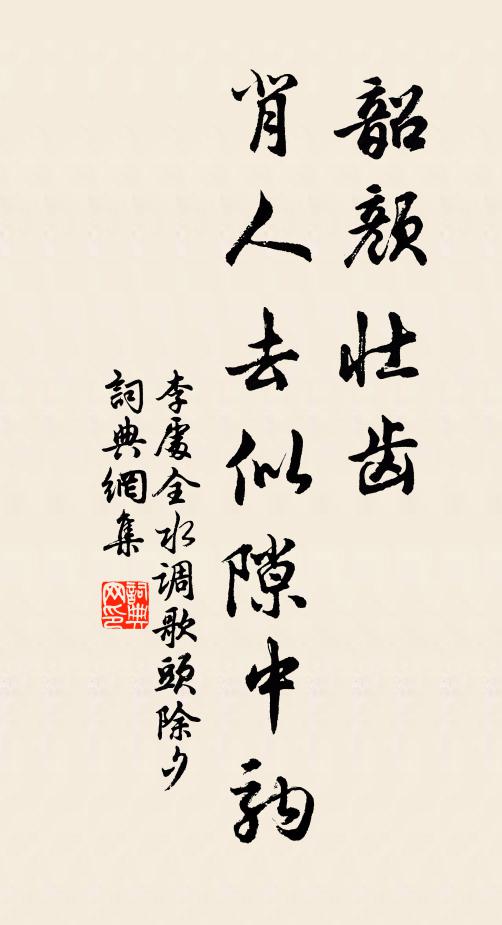 韶顏壮齿
背人去似隙中驹
李處全水调歌頭除夕
詞典網集
詞典网印